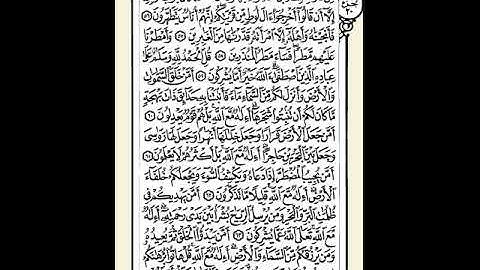 إِلَّآ أَن قَالُوٓا۟ أَخْرِجُوٓا۟ ءَالَ لُوطٍ مِّن قَرْيَتِكُمْ إِنَّهُمْ أُنَاسٌ يَتَطَهَّرُونَ ٥٦
فَأَنجَيْنَٰهُ وَأَهْلَهُۥٓ إِلَّا ٱمْرَأَتَهُۥ قَدَّرْنَٰهَا مِنَ ٱلْغَٰبِرِينَ ٥٧ وَأَمْطَرْنَا
عَلَيْهِم مَّطَرًا فَسَآءَ مَطَرُ ٱلْمُنذَرِينَ ٥٨ قُلِ ٱلْحَمْدُ لِلَّهِ وَسَلَٰمٌ عَلَىٰ
عِبَادِهِ ٱلَّذِينَ ٱصْطَفَىٰٓ ءَآللَّهُ خَيْرٌ أَمَّا يُشْرِكُونَ ٥٩ أَمَّنْ خَلَقَ ٱلسَّمَٰوَٰتِ
وَٱلْأَرْضَ وَأَنزَلَ لَكُم مِّنَ ٱلسَّمَآءِ مَآءً فَأَنۢبَتْنَا بِهِۦ حَدَآئِقَ ذَاتَ بَهْجَةٍ
مَّا كَانَ لَكُمْ أَن تُنۢبِتُوا۟ شَجَرَهَآ أَءِلَٰهٌ مَّعَ ٱللَّهِ بَلْ هُمْ قَوْمٌ يَعْدِلُونَ ٦٠
أَمَّن جَعَلَ ٱلْأَرْضَ قَرَارًا وَجَعَلَ خِلَٰلَهَآ أَنْهَٰرًا وَجَعَلَ لَهَا رَوَٰسِىَ
وَجَعَلَ بَيْنَ ٱلْبَحْرَيْنِ حَاجِزًا أَءِلَٰهٌ مَّعَ ٱللَّهِ بَلْ أَكْثَرُهُمْ لَا يَعْلَمُونَ ٦١
أَمَّن يُجِيبُ ٱلْمُضْطَرَّ إِذَا دَعَاهُ وَيَكْشِفُ ٱلسُّوٓءَ وَيَجْعَلُكُمْ خُلَفَآءَ
ٱلْأَرْضِ أَءِلَٰهٌ مَّعَ ٱللَّهِ قَلِيلًا مَّا تَذَكَّرُونَ ٦٢ أَمَّن يَهْدِيكُمْ فِى
ظُلُمَٰتِ ٱلْبَرِّ وَٱلْبَحْرِ وَمَن يُرْسِلُ ٱلرِّيَٰحَ بُشْرًۢا بَيْنَ يَدَىْ رَحْمَتِهِۦٓ أَءِلَٰهٌ
مَّعَ ٱللَّهِ تَعَٰلَى ٱللَّهُ عَمَّا يُشْرِكُونَ ٦٣ أَمَّن يَبْدَؤُا۟ ٱلْخَلْقَ ثُمَّ يُعِيدُهُۥ
وَمَن يَرْزُقُكُم مِّنَ ٱلسَّمَآءِ وَٱلْأَرْضِ أَءِلَٰهٌ مَّعَ ٱللَّهِ قُلْ هَاتُوا۟ بُرْهَٰنَكُمْ